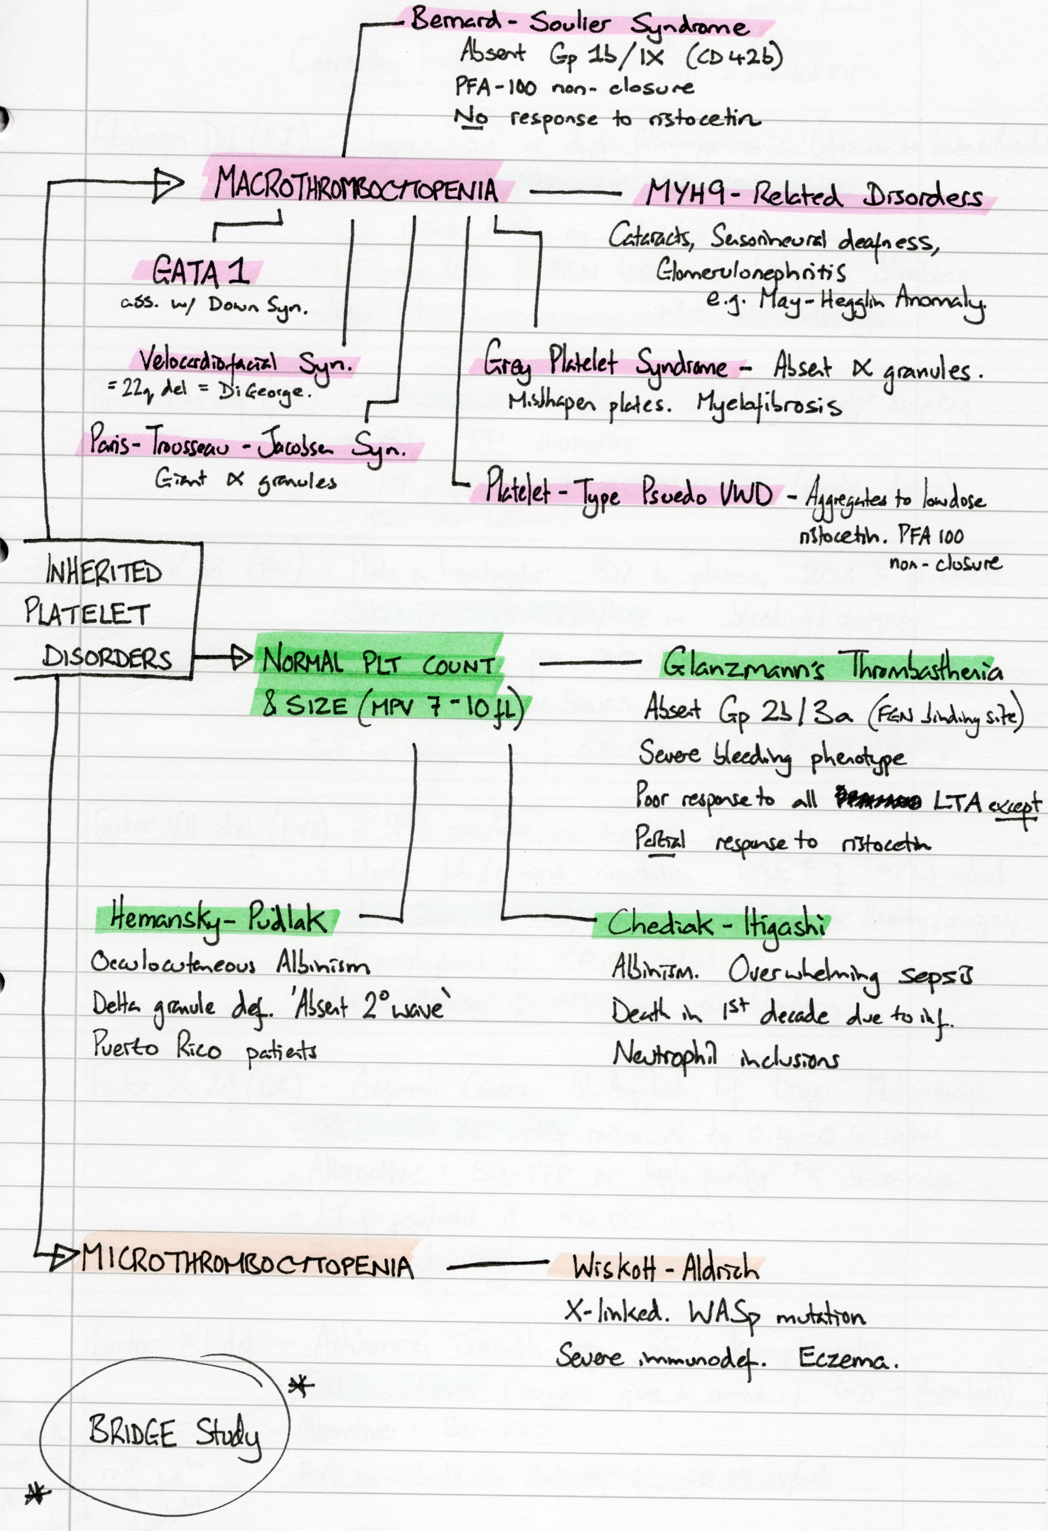 Bernard - Soulier Syndrome
Absent Gp 1b/IX (CD42b)
PFA-100 non-closure
No response to ristocetin
MACROTHROMBOCYTOPENIA
MYH9-Related Disorders
Cataracts, Sensorineural deafness,
Glomerulonephritis
e.g. May-Hegglin Anomaly.
GATA 1
ass. w/ Down Syn.
Velocardiofacial Syn.
= 22q del = DiGeorge.
Grey Platelet Syndrome - Absent α granules.
Misshapen plates. Myelofibrosis
Paris-Trousseau-Jacobsen Syn.
Giant α granules
Platelet-Type Psuedo VWD - Aggregates to low dose
ristocetin. PFA 100
non-closure
INHERITED
PLATELET
DISORDERS
NORMAL PLT COUNT
& SIZE (MPV 7-10fL)
Glanzmann's Thrombasthenia
Absent Gp 2b/3a (FGN binding site)
Severe bleeding phenotype
Poor response to all LTA except
Partial response to ristocetin
Hemansky-Pudlak
Occulocutaneous Albinism
Delta granule def. 'Absent 2° wave'
Puerto Rico patients
Chediak-Higashi
Albinism. Overwhelming sepsis
Death in 1st decade due to inf.
Neutrophil inclusions
MICROTHROMBOCYTOPENIA
Wiskott-Aldrich
X-linked. WASp mutation
Severe immunodef. Eczema.
BRIDGE Study